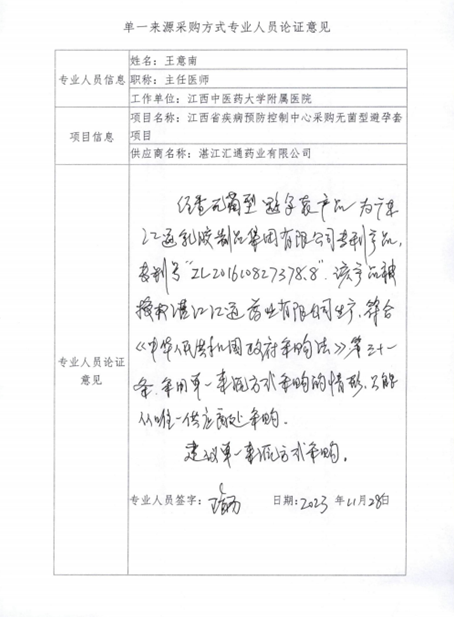 单一来源采购方式专业人员论证意见
专业人员信息
姓名：王意南
职称：主任医师
工作单位：江西中医药大学附属医院
项目信息
项目名称：江西省疾病预防控制中心采购无菌型避孕套
项目
供应商名称：湛江汇通药业有限公司
专业人员论证
意见
经查无菌型避孕套产品为广东
汇通乳胶制品集团有限公司专利产品，
专利号“ZL201610827378.8”. 该产品被
授权湛江汇通药业有限公司生产，符合
《中华人民共和国政府采购法》第三十一
条 采用单一来源方式采购的情形，只能
从唯一供应商处采购.
建议单一来源方式采购.
专业人员签字：
日期：2023 年11月28日